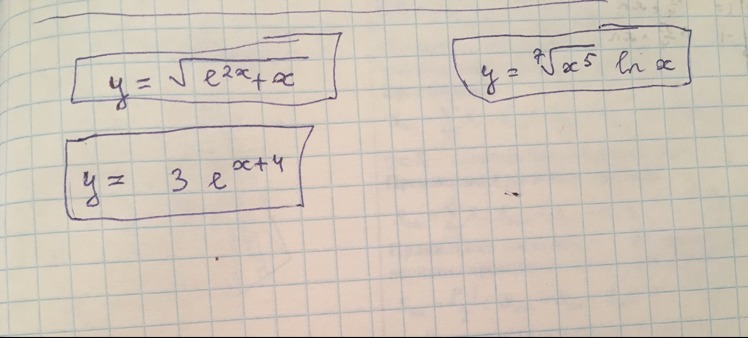 y = √(e^(2x) + x)
y = ⁷√(x⁵) ln x
y = 3 e^(x+4)